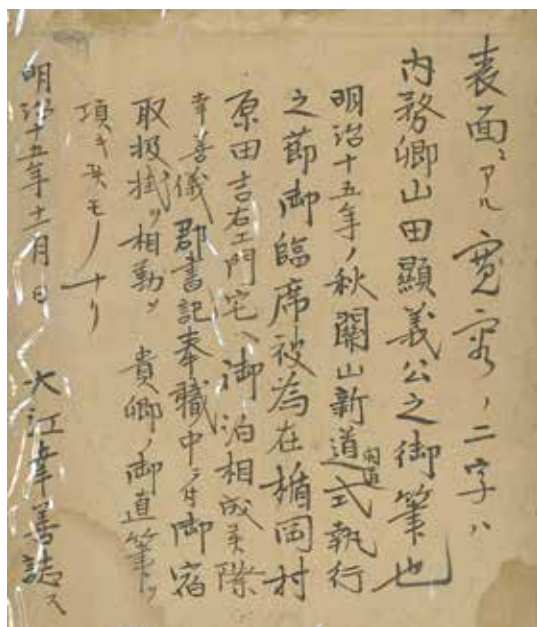 表面ニアル寛容ノ二字ハ
内務卿山田顕義公之御筆也
明治十五年ノ秋関山新道開道式執行
之節御臨席被為在楯岡村
原田吉右エ門宅ヘ御泊相成タ際
幸善儀郡書記奉職中ニ付御宿
取扱拭リ相勤ツ貴卿ノ御直筆ヲ
項キタモノナリ
明治十五年十一月日 大江幸善誌ス